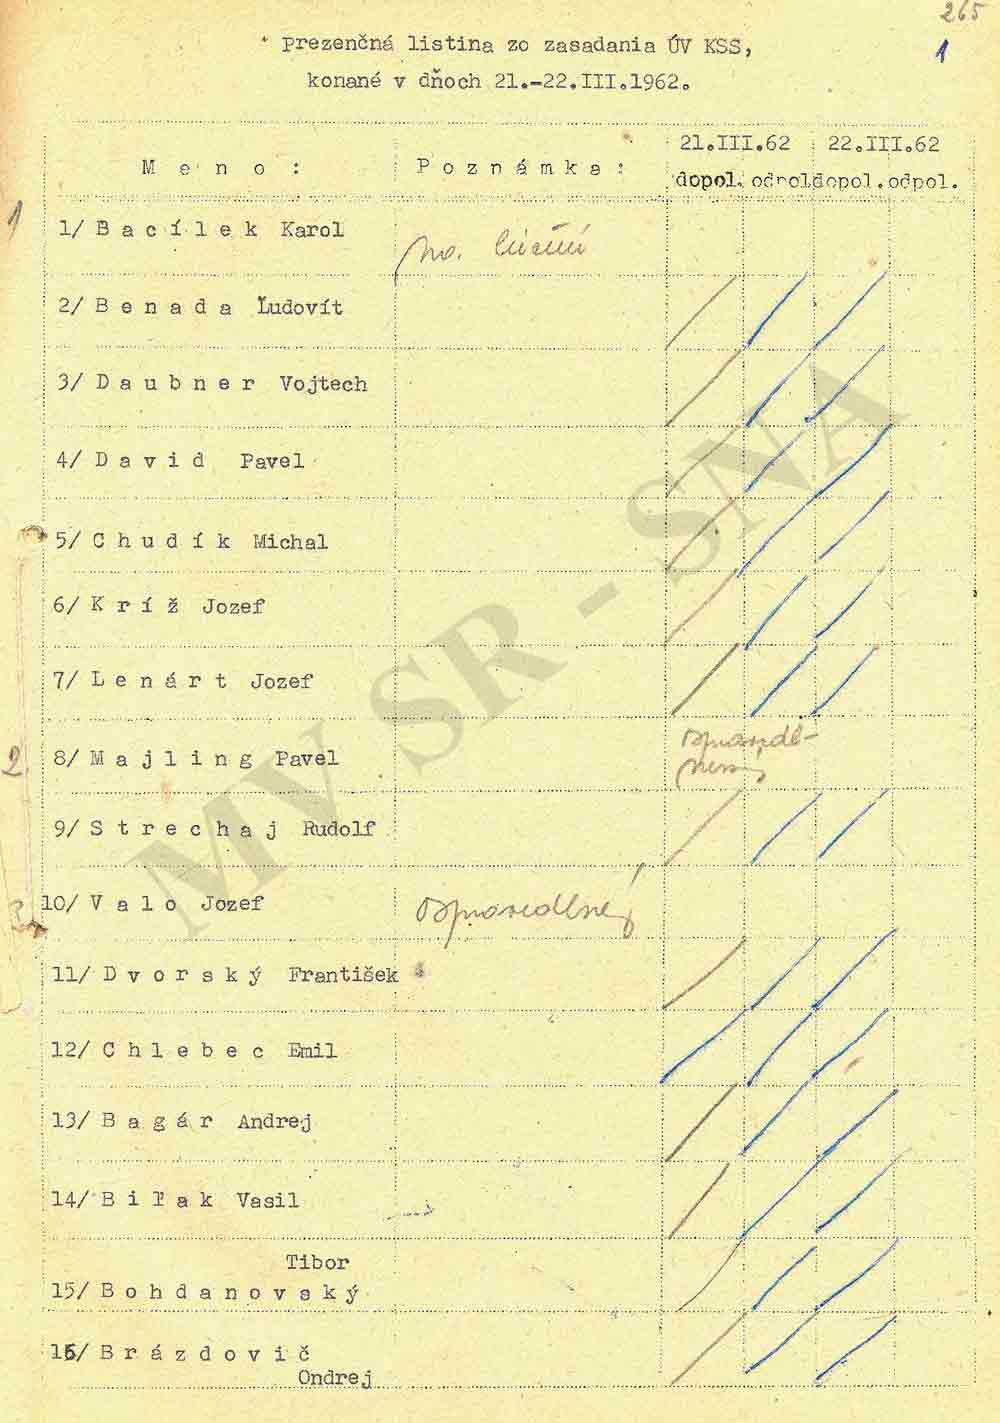 265
1
Prezenčná listina zo zasadania ÚV KSS,
konané v dňoch 21.-22.III.1962.
M e n o : P o z n á m k a : 21.III.62 22.III.62
dopol. odpol. dopol. odpol.
1
1/ B a c í l e k Karol na liečení
2/ B e n a d a Ľudovít
3/ D a u b n e r Vojtech
4/ D a v i d Pavel
5/ C h u d í k Michal
6/ K r í ž Jozef
7/ L e n á r t Jozef
2
8/ M a j l i n g Pavel ospravedl-
nený
9/ S t r e c h a j Rudolf
3
10/ V a l o Jozef ospravedlnený
11/ D v o r s k ý František
12/ C h l e b e c Emil
13/ B a g á r Andrej
14/ B i ľ a k Vasil
Tibor
15/ B o h d a n o v s k ý
16/ B r á z d o v i č
Ondrej
MV SR - SNA